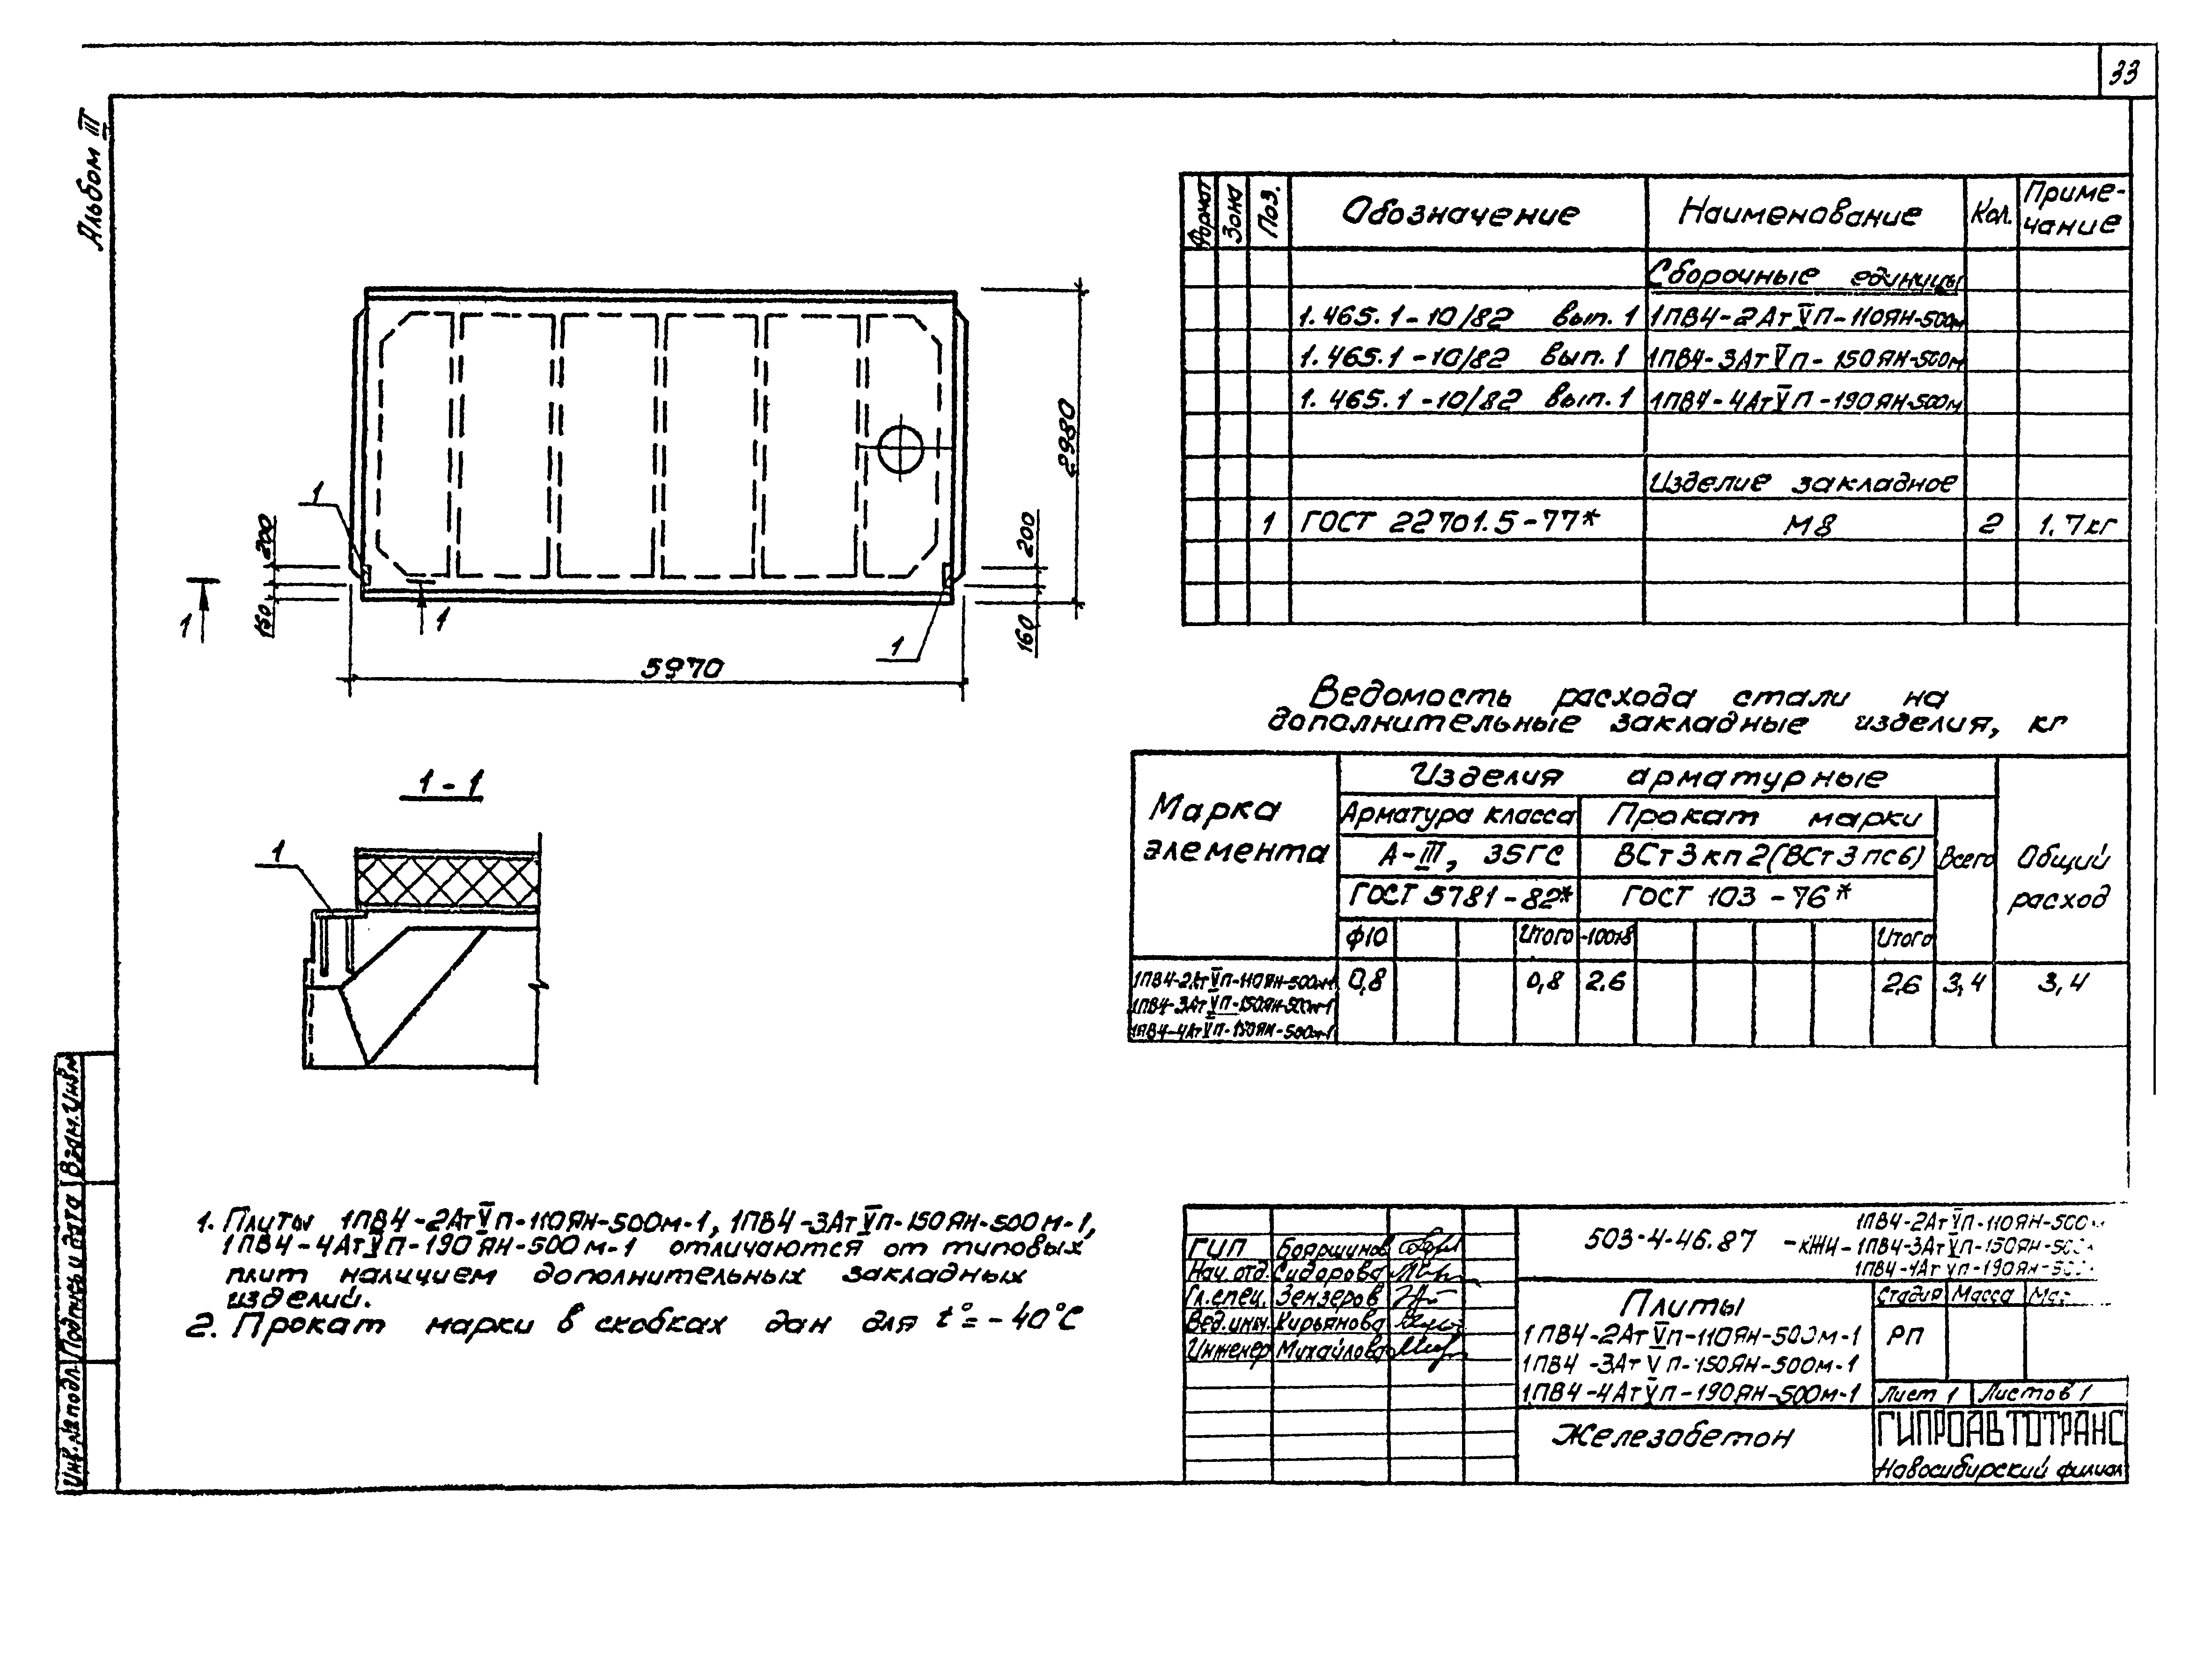 33
Альбом III
Формат Зона Поз. Обозначение Наименование Кол. Приме-
чание
Сборочные единицы
1.465.1-10/82 вып. 1 1ПВ4-2АтVП-110ЯН-500м
1.465.1-10/82 вып. 1 1ПВ4-3АтVП-150ЯН-500м
1.465.1-10/82 вып. 1 1ПВ4-4АтVП-190ЯН-500м
Изделие закладное
1 ГОСТ 22701.5-77* М8 2 1.7кг
2980
1
200
150
1
1
1
200
160
5970
1-1
1
Ведомость расхода стали на
дополнительные закладные изделия, кг
Марка
элемента
Изделия арматурные
Арматура класса Прокат марки
А-III, 35ГС ВСт3кп2(ВСт3пс6) Всего Общий
расход
ГОСТ 5781-82* ГОСТ 103-76*
ф10 Итого -100х8 Итого
1ПВ4-2АтVП-110ЯН-500м-1 0,8 0,8 2.6 2.6 3,4 3,4
1ПВ4-3АтVП-150ЯН-500м-1
1ПВ4-4АтVП-190ЯН-500м-1
1. Плиты 1ПВ4-2АтVП-110ЯН-500м-1, 1ПВ4-3АтVП-150ЯН-500м-1,
1ПВ4-4АтVП-190ЯН-500м-1 отличаются от типовых
плит наличием дополнительных закладных
изделий.
2. Прокат марки в скобках дан для t°=-40°С
Взам.инв.№
Подпись и дата
Инв.№подл.
503-4-46.87 -КЖИ-
1ПВ4-2АтVП-110ЯН-500м
1ПВ4-3АтVП-150ЯН-500
1ПВ4-4АтVП-190ЯН-500
ГИП Бояршинов
Нач.отд. Сидорова
Гл.спец. Зензеров
Вед.инж. Кирьянова
Инженер Михайлова
Плиты
1ПВ4-2АтVП-110ЯН-500м-1
1ПВ4-3АтVП-150ЯН-500м-1
1ПВ4-4АтVП-190ЯН-500м-1
Стадия Масса Мас
РП
Лист 1 Листов 1
Железобетон
ГИПРОАВТОТРАНС
Новосибирский филиал